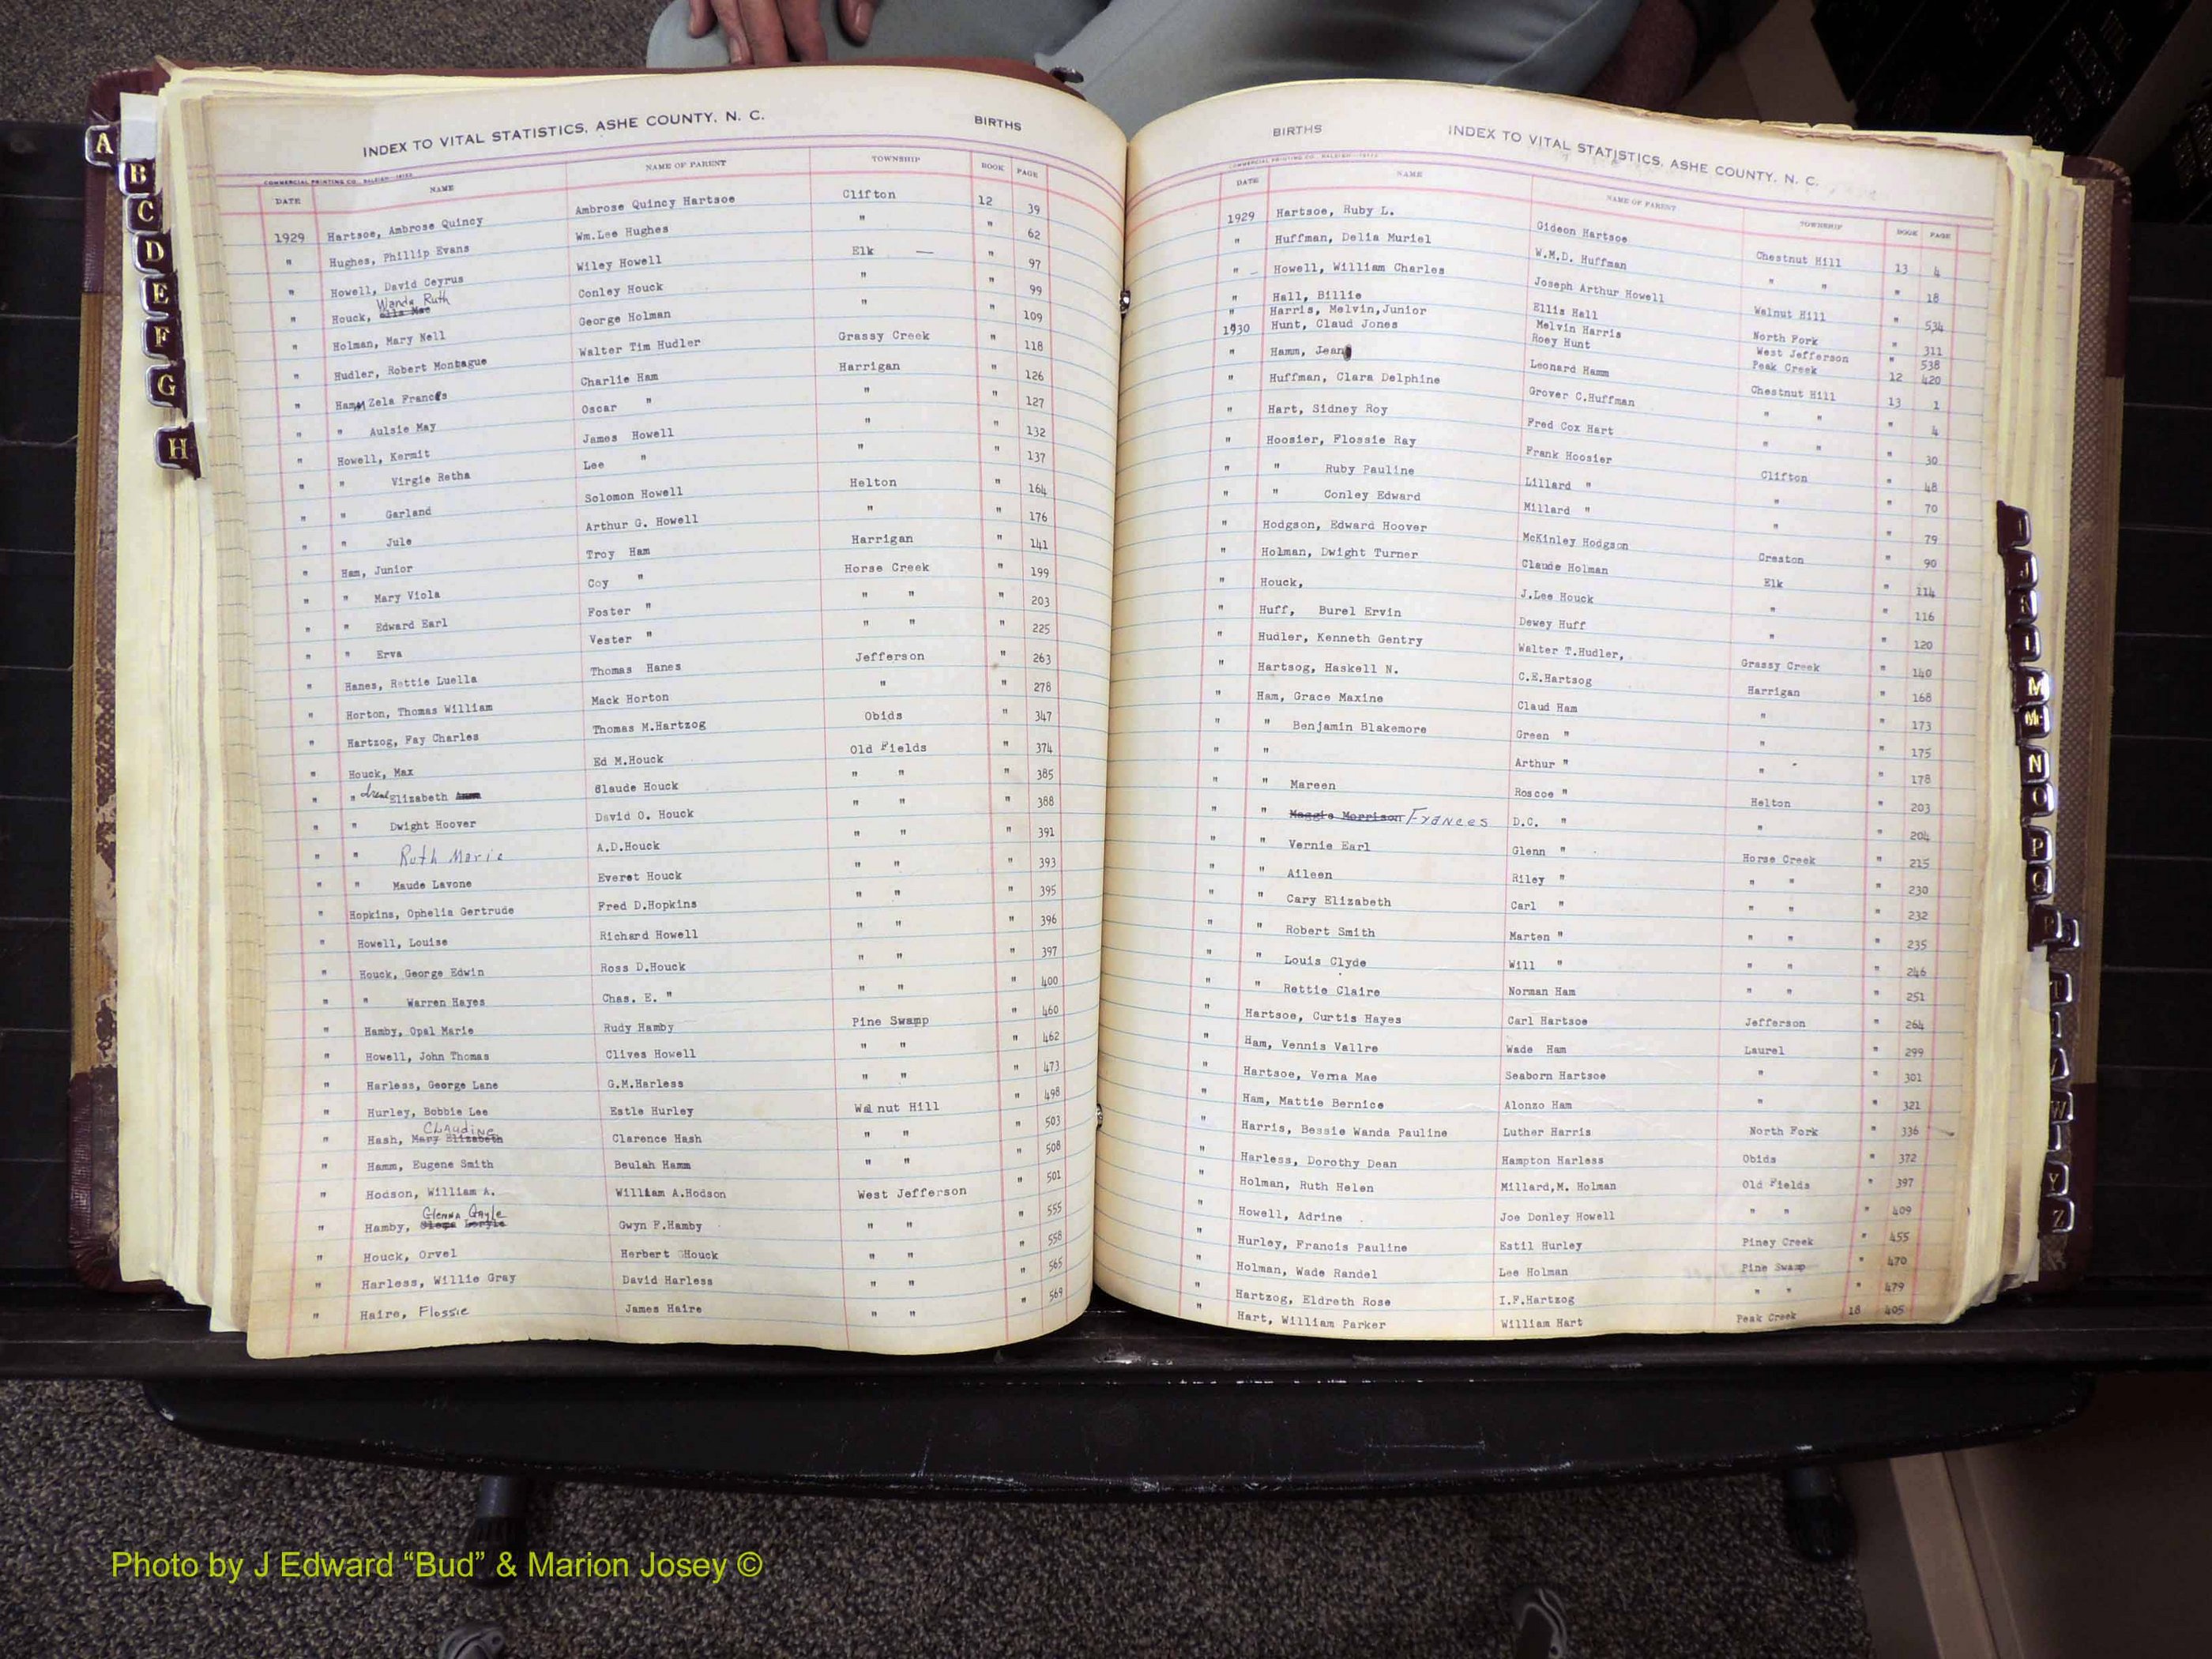 INDEX TO VITAL STATISTICS, ASHE COUNTY, N. C. BIRTHS
COMMERCIAL PRINTING CO. RALEIGH
DATE NAME NAME OF PARENT TOWNSHIP BOOK PAGE
1929 Hartsoe, Ambrose Quincy Ambrose Quincy Hartsoe Clifton 12 39
" Hughes, Phillip Evans Wm.Lee Hughes " " 62
" Howell, David Ceyrus Wiley Howell Elk — " 97
" Houck, Wanda Ruth Conley Houck " " 99
" Holman, Mary Nell George Holman " " 109
" Hudler, Robert Montague Walter Tim Hudler Grassy Creek " 118
" Hamm Zela Frances Charlie Ham Harrigan " 126
" " Aulsie May Oscar " " " 127
" Howell, Kermit James Howell " " 132
" " Virgie Retha Lee " " " 137
" " Garland Solomon Howell Helton " 164
" " Jule Arthur G. Howell " " 176
" Ham, Junior Troy Ham Harrigan " 141
" " Mary Viola Coy " Horse Creek " 199
" " Edward Earl Foster " " " " 203
" " Erva Vester " " " " 225
" Hanes, Rettie Luella Thomas Hanes Jefferson " 263
" Horton, Thomas William Mack Horton " " 278
" Hartzog, Fay Charles Thomas M.Hartzog Obids " 347
" Houck, Max Ed M.Houck Old Fields " 374
" " Irene Elizabeth Claude Houck " " " 385
" " Dwight Hoover David O. Houck " " " 388
" " Ruth Marie A.D.Houck " " " 391
" " Maude Lavone Everet Houck " " " 393
" Hopkins, Ophelia Gertrude Fred D.Hopkins " " " 395
" Howell, Louise Richard Howell " " " 396
" Houck, George Edwin Ross D.Houck " " " 397
" " Warren Hayes Chas. E. " " " " 400
" Hamby, Opal Marie Rudy Hamby Pine Swamp " 460
" Howell, John Thomas Clives Howell " " " 462
" Harless, George Lane G.M.Harless " " " 473
" Hurley, Bobbie Lee Estle Hurley Walnut Hill " 498
" Hash, Mary Elizabeth CLAUdiNe Clarence Hash " " " 503
" Hamm, Eugene Smith Beulah Hamm " " " 508
" Hodson, William A. William A.Hodson West Jefferson " 501
" Hamby, Glenna Gayle Gwyn F.Hamby " " " 555
" Houck, Orvel Herbert Houck " " " 558
" Harless, Willie Gray David Harless " " " 565
" Haire, Flossie James Haire " " " 569
BIRTHS INDEX TO VITAL STATISTICS, ASHE COUNTY, N. C.
COMMERCIAL PRINTING CO. RALEIGH
DATE NAME NAME OF PARENT TOWNSHIP BOOK PAGE
1929 Hartsoe, Ruby L. Gideon Hartsoe Chestnut Hill 13 4
" Huffman, Delia Muriel W.M.D. Huffman " " " 18
" Howell, William Charles Joseph Arthur Howell Walnut Hill " 534
" Hall, Billie Ellis Hall North Fork " 311
" Harris, Melvin,Junior Melvin Harris West Jefferson " 538
1930 Hunt, Claud Jones Roey Hunt Peak Creek 12 420
" Hamm, Jean Leonard Hamm Chestnut Hill 13 1
" Huffman, Clara Delphine Grover C.Huffman " " " 4
" Hart, Sidney Roy Fred Cox Hart " " " 30
" Hoosier, Flossie Ray Frank Hoosier Clifton " 48
" " Ruby Pauline Lillard " " " 70
" " Conley Edward Millard " " " 79
" Hodgson, Edward Hoover McKinley Hodgson Creston " 90
" Holman, Dwight Turner Claude Holman Elk " 114
" Houck, J.Lee Houck " " 116
" Huff, Burel Ervin Dewey Huff " " 120
" Hudler, Kenneth Gentry Walter T.Hudler, Grassy Creek " 140
" Hartsog, Haskell N. C.E.Hartsog Harrigan " 168
" Ham, Grace Maxine Claud Ham " " 173
" " Benjamin Blakemore Green " " " 175
" " Arthur " " " 178
" " Mareen Roscoe " Helton " 203
" " Maggie Morrison Frances D.C. " " " 204
" " Vernie Earl Glenn " Horse Creek " 215
" " Aileen Riley " " " " 230
" " Cary Elizabeth Carl " " " " 232
" " Robert Smith Marten " " " " 235
" " Louis Clyde Will " " " " 246
" " Rettie Claire Norman Ham " " " 251
" Hartsoe, Curtis Hayes Carl Hartsoe Jefferson " 264
" Ham, Vennis Vallre Wade Ham Laurel " 299
" Hartsoe, Verna Mae Seaborn Hartsoe " " 301
" Ham, Mattie Bernice Alonzo Ham " " 321
" Harris, Bessie Wanda Pauline Luther Harris North Fork " 336
" Harless, Dorothy Dean Hampton Harless Obids " 372
" Holman, Ruth Helen Millard,M. Holman Old Fields " 397
" Howell, Adrine Joe Donley Howell " " " 409
" Hurley, Francis Pauline Estil Hurley Piney Creek " 455
" Holman, Wade Randel Lee Holman Pine Swamp " 470
" Hartzog, Eldreth Rose I.F.Hartzog " " " 479
" Hart, William Parker William Hart Peak Creek 18 405
A
B
C
D
E
F
G
H
M
Mc
N
O
P
Q
R
T
W
Y
Z
Photo by J Edward “Bud” & Marion Josey ©